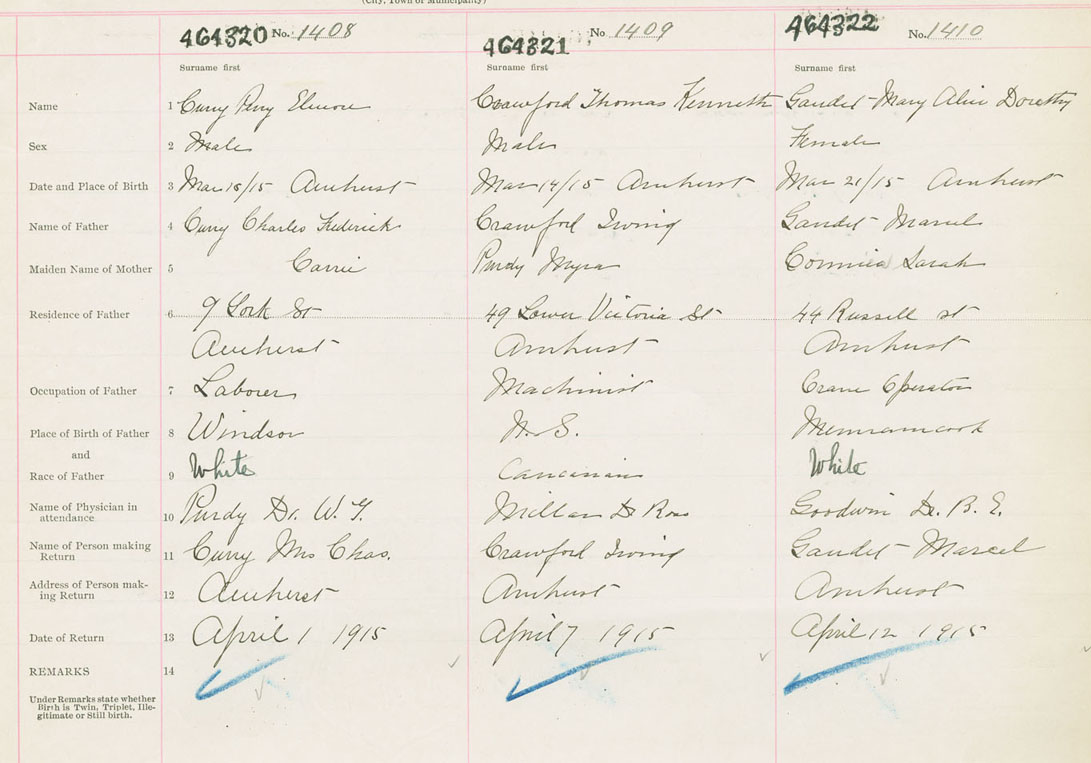 (City, Town or Municipality)
464320 No. 1408 464321 No 1409 464322 No. 1410
Surname first Surname first Surname first
Name 1 Curry Perry Elmore Crawford Thomas Kenneth Gaudet Mary Alice Dorothy
Sex 2 Male Male Female
Date and Place of Birth 3 Mar 18/15 Amherst Mar 14/15 Amherst Mar 21/15 Amherst
Name of Father 4 Curry Charles Frederick Crawford Irving Gaudet Marcel
Maiden Name of Mother 5 Carrie Purdy Myra Sarah
Residence of Father 6 9 York St 49 Lower Victoria St 44 Russell st
Amherst Amherst Amherst
Occupation of Father 7 Laborer Machinist Crane Operator
Place of Birth of Father 8 Windsor N. S. Memramcook
and
Race of Father 9 White Caucasian White
Name of Physician in attendance 10 Purdy Dr. W. Y. Millar Dr Ross Goodwin Dr. B. E.
Name of Person making Return 11 Curry Mrs Chas. Crawford Irving Gaudet Marcel
Address of Person mak-ing Return 12 Amherst Amherst Amherst
Date of Return 13 April 1 1915 April 7 1915 April 12 1915
REMARKS 14
Under Remarks state whether
Birth is Twin, Triplet, Ille-
gitimate or Still birth.